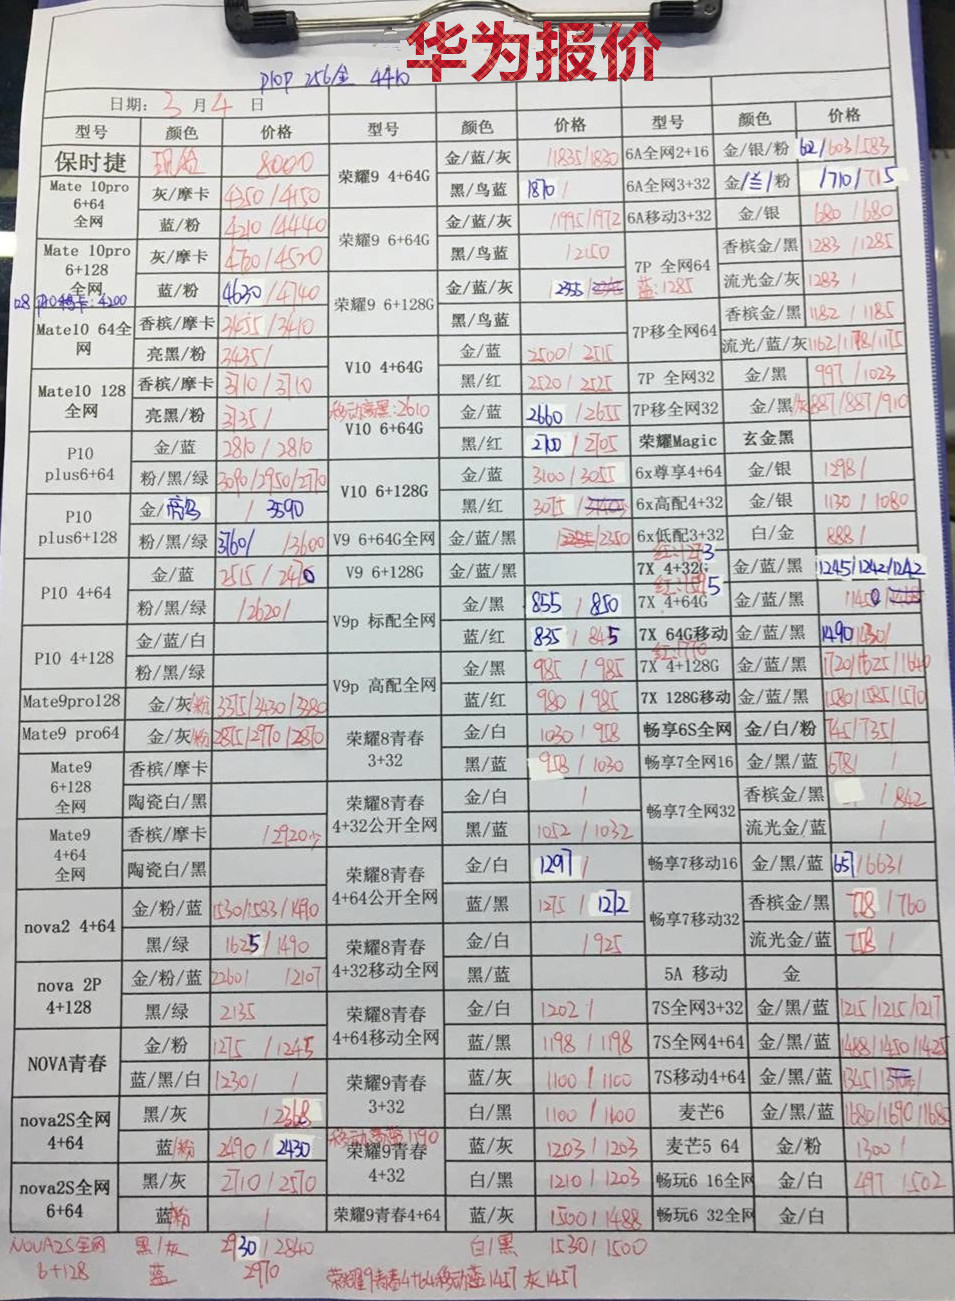 华为报价
P10P 256金 4410
日期: 3 月 4 日
型号 颜色 价格 型号 颜色 价格 型号 颜色 价格
保时捷 8000
Mate 10pro 6+64 全网 灰/摩卡 4350/4150
蓝/粉 4210/4440
Mate 10pro 6+128 全网 灰/摩卡 4760/4520
蓝/粉 4630/4740
128 P10 4200
Mate10 64全网 香槟/摩卡 3455/3410
亮黑/粉 3435/
Mate10 128 全网 香槟/摩卡 3710/3710
亮黑/粉 3735/
P10 plus6+64 金/蓝 2810/2810
粉/黑/绿 3090/2950/2770
P10 plus6+128 金/ / 3590
粉/黑/绿 3760/ /3600
P10 4+64 金/蓝 2515/2470
粉/黑/绿 /2620/
P10 4+128 金/蓝/白
粉/黑/绿
Mate9pro128 金/灰/粉 3375/3430/3380
Mate9 pro64 金/灰/粉 2875/2970/2870
Mate9 6+128 全网 香槟/摩卡
陶瓷白/黑
Mate9 4+64 全网 香槟/摩卡 /2920
陶瓷白/黑
nova2 4+64 金/粉/蓝 1530/1583/1490
黑/绿 1625/1490
nova 2P 4+128 金/粉/蓝 2260/ /2107
黑/绿 2135
NOVA青春 金/粉 1275 /1245
蓝/黑/白 1230/ /
nova2S全网 4+64 黑/灰 /2368
蓝/粉 2490/2430
nova2S全网 6+64 黑/灰 2710/2570
蓝/粉 /
荣耀9 4+64G 金/蓝/灰 /1835/1830
黑/鸟蓝 1870/
荣耀9 6+64G 金/蓝/灰 /1995/1972
黑/鸟蓝 /2150
荣耀9 6+128G 金/蓝/灰 2355/
黑/鸟蓝
V10 4+64G 金/蓝 2500/2515
黑/红 2520/2525
移动亮黑:2610
V10 6+64G 金/蓝 2660/2655
黑/红 2700/2705
V10 6+128G 金/蓝 3100/3055
黑/红 3075/
V9 6+64G全网 金/蓝/黑 /2350
V9 6+128G 金/蓝/黑
V9p 标配全网 金/黑 855/850
蓝/红 835/845
V9p 高配全网 金/黑 985/985
蓝/红 980/985
荣耀8青春 3+32 金/白 1030/958
黑/蓝 958/1030
荣耀8青春 4+32公开全网 金/白 /
黑/蓝 1052/1032
荣耀8青春 4+64公开全网 金/白 1297/
蓝/黑 1275/1272
荣耀8青春 4+32移动全网 金/白 /925
黑/蓝
荣耀8青春 4+64移动全网 金/白 1202/
蓝/黑 1198/1198
荣耀9青春 3+32 蓝/灰 1100/1100
白/黑 1100/1100
荣耀9青春 4+32 蓝/灰 1203/1203
白/黑 1210/1203
荣耀9青春4+64 蓝/灰 1500/1488
6A全网2+16 金/银/粉 602/603/583
6A全网3+32 金/兰/粉 /710/715
6A移动3+32 金/银 680/680
7P 全网64 香槟金/黑 1283/1285
蓝:1285 流光金/灰 1283/
7P移全网64 香槟金/黑 1182/1185
流光/蓝/灰 1162/1178/1175
7P 全网32 金/黑 997/1023
7P移全网32 金/黑/灰 887/887/910
荣耀Magic 玄金黑
6x尊享4+64 金/银 1298/
6x高配4+32 金/银 1130/1080
6x低配3+32 白/金 888/
红:1273
7X 4+32G 金/蓝/黑 1245/1242/1242
7X 4+64G 金/蓝/黑
7X 64G移动 金/蓝/黑 1490/1430/
红:1770
7X 4+128G 金/蓝/黑 1720/1625/1640
7X 128G移动 金/蓝/黑 1580/1585/1570
畅享6S全网 金/白/粉 745/735/
畅享7全网16 金/黑/蓝 678/ /
畅享7全网32 香槟金/黑 /842
流光金/蓝 /
畅享7移动16 金/黑/蓝 657/663/
畅享7移动32 香槟金/黑 778/760
流光金/蓝 758/
5A 移动 金
7S全网3+32 金/黑/蓝 1215/1215/1217
7S全网4+64 金/黑/蓝 1488/1450/1425
7S移动4+64 金/黑/蓝
麦芒6 金/黑/蓝 1680/1690/1680
麦芒5 64 金/粉 1300/
畅玩6 16全网 金/白 497 /502
畅玩6 32全网 金/白
NOVA2S全网 6+128 黑/灰 2930/2840
蓝 2970
白/黑 1530/1500
荣耀9青春4+64移动蓝1457 灰1457